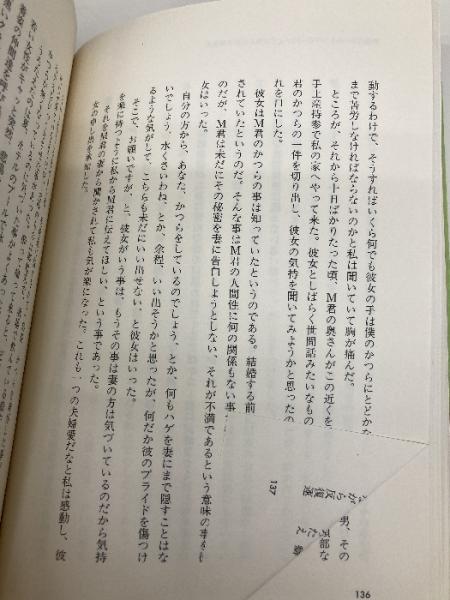 動するわけで、そうすればいくら何でも彼女の手は僕のかつらにとどかな
まで苦労しなければならないのかと私は聞いていて胸が痛んだ。
ところが、それから十日ばかりたった頃、M君の奥さんがこの近くを
手土産持参で私の家へやって来た。彼女としばらく世間話みたいなもの
君のかつらの一件を切り出し、彼女の気持を聞いてみようかと思ったの
れを口にした。
彼女はM君のかつらの事は知っていたというのである。結婚する前
されていたというのだ。そんな事はM君の人間性に何の関係もない事
のだが、M君は未だにその秘密を妻に告白しようとしない、それが不満であるという意味の事を
女はいった。
自分の方から、あなた、かつらをしているのでしょう、とか、何もハゲを妻にまで隠すことはな
いでしょう、水くさいわね、とか、余程、いい出そうかと思ったが、何だか彼のプライドを傷つけ
るような気がして、こちらも未だにいい出せない、と彼女はいった。
そこで、お願いですが、と、彼女がいう事は、もうその事は妻の方は気づいているのだから気持
を楽に持つように私からM君に伝えてほしい、という事であった。
それをM君の妻から聞かされて私も気が楽になった。これも一つの夫婦愛だなと私は感動し、彼
女の申し出を承知した。
137
男、その
136